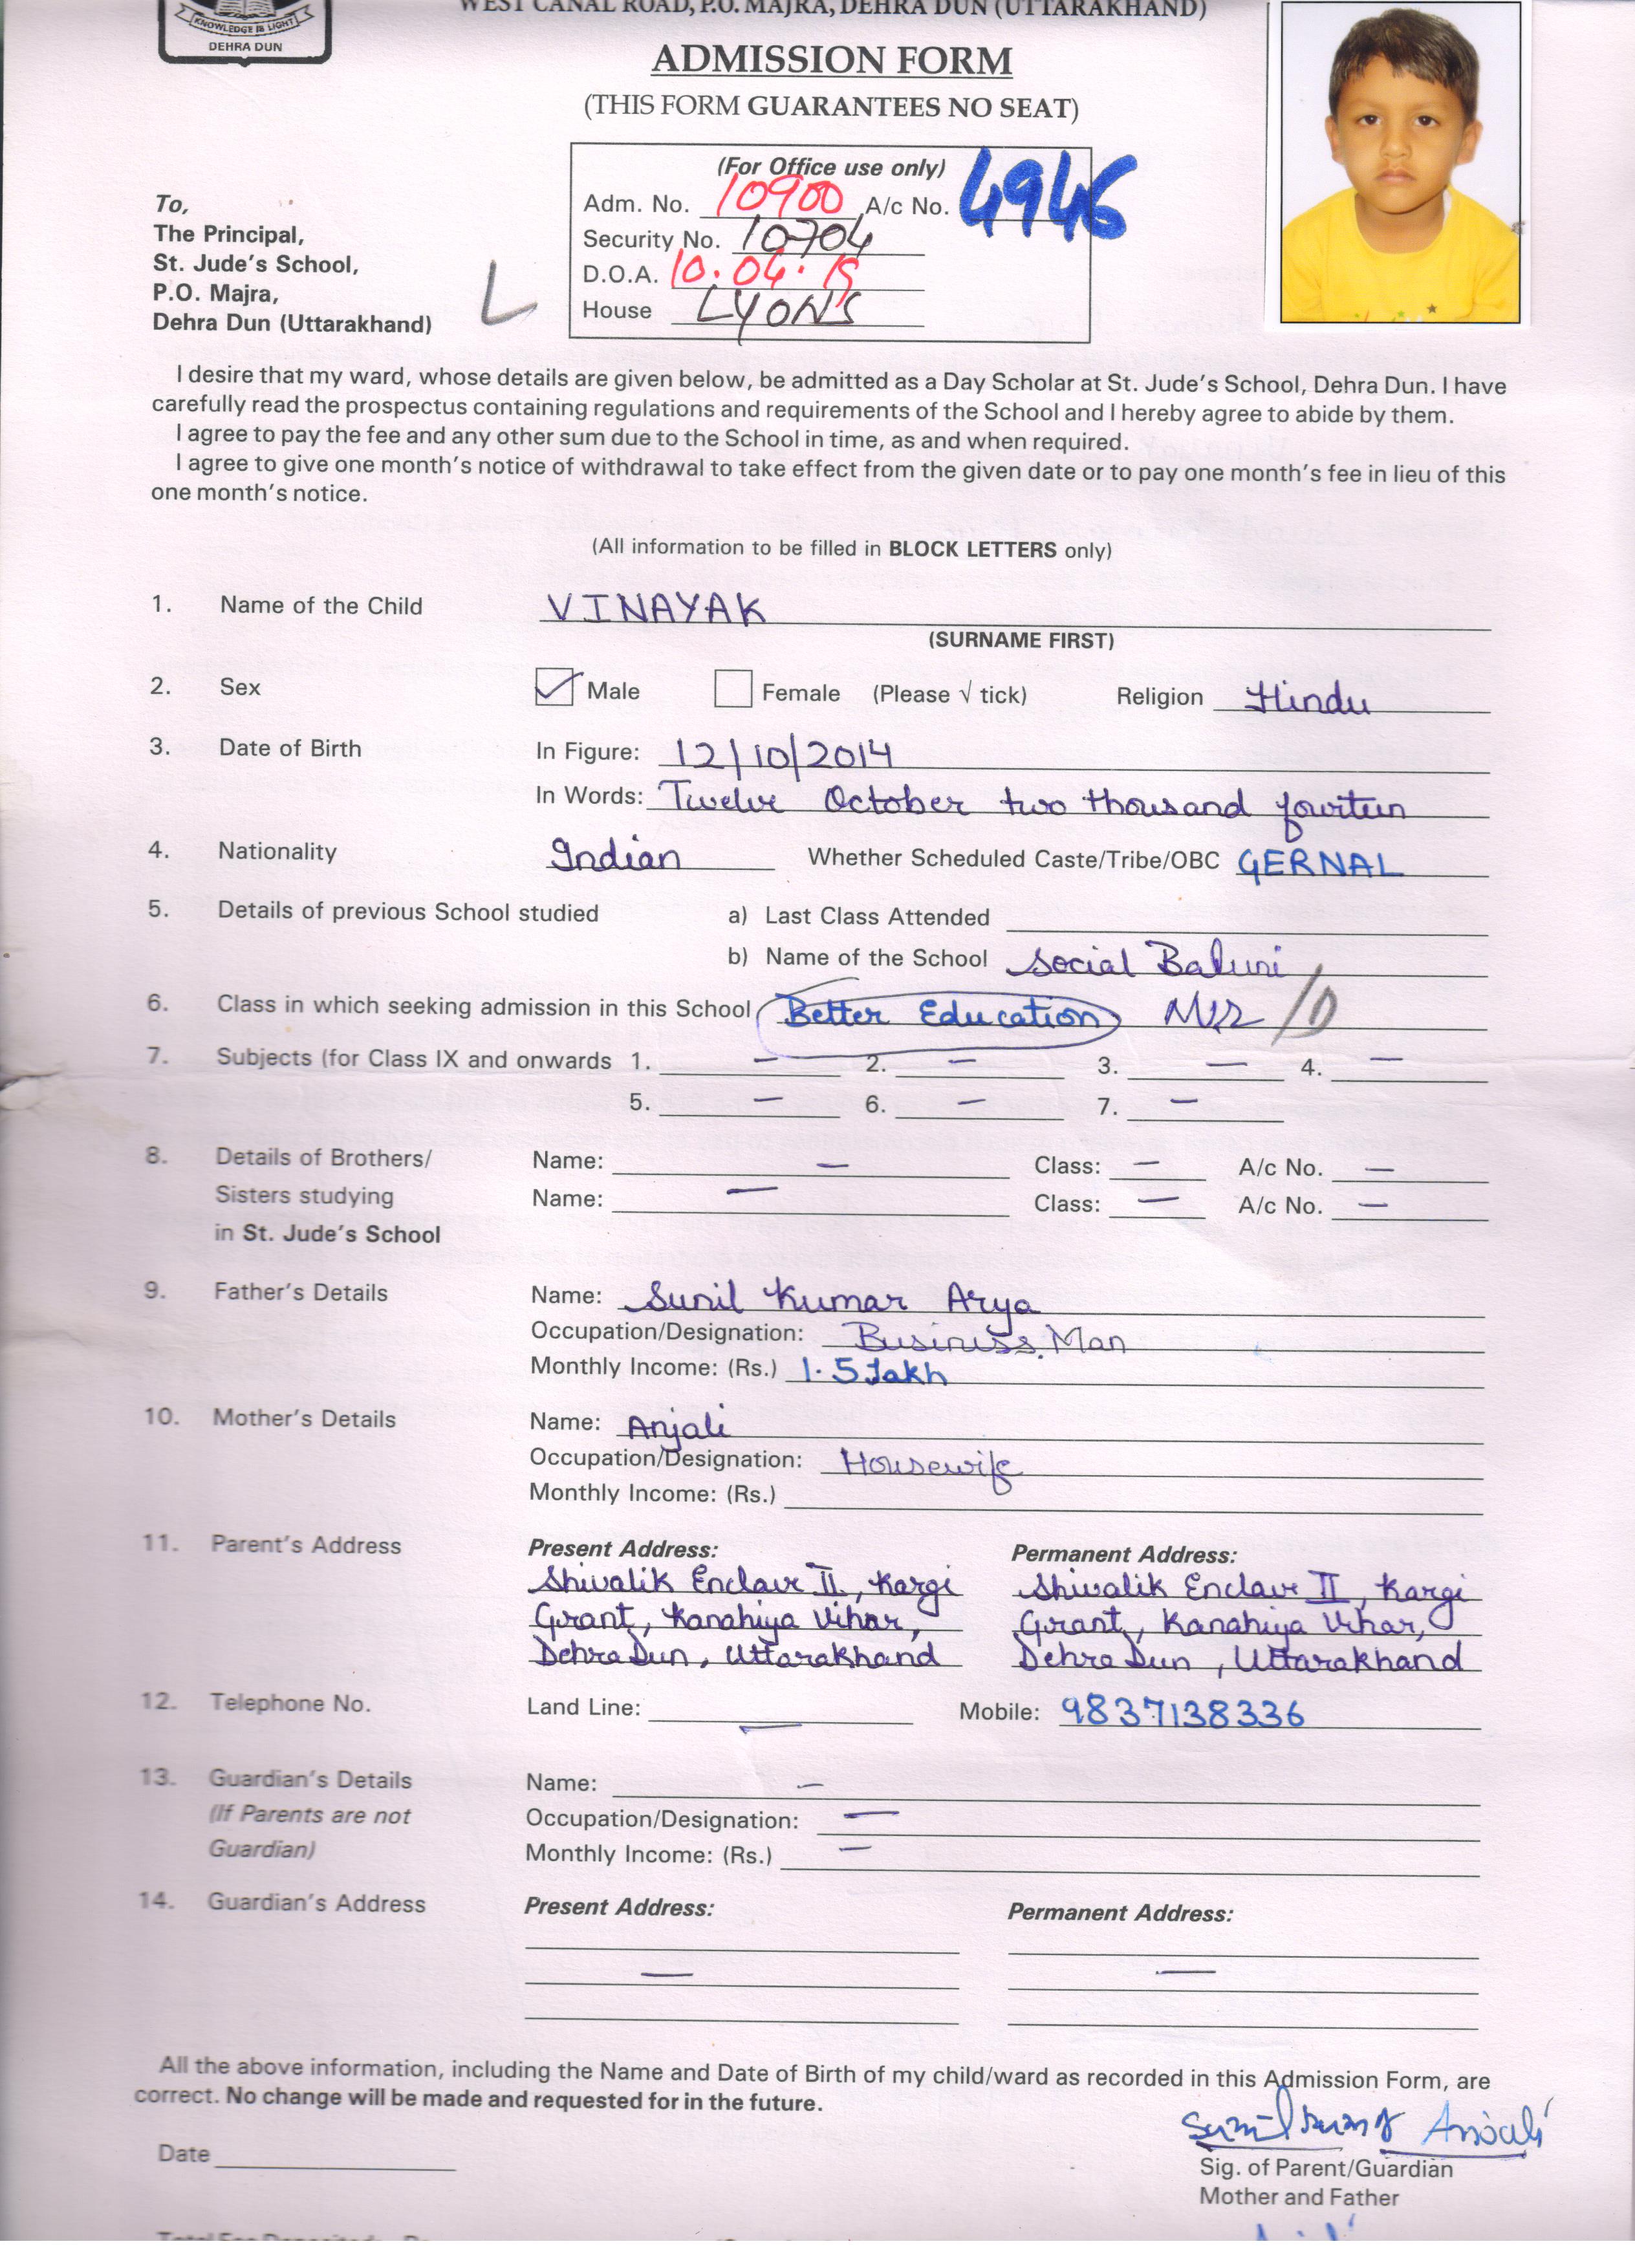 WEST CANAL ROAD, P.O. MAJRA, DEHRA DUN (UTTARAKHAND)
KNOWLEDGE IS LIGHT
DEHRA DUN
ADMISSION FORM
(THIS FORM GUARANTEES NO SEAT)
(For Office use only)
Adm. No. 10900 A/c No. 4946
Security No. 10704
D.O.A. 10.04.19
House LYONS
To,
The Principal,
St. Jude's School,
P.O. Majra,
Dehra Dun (Uttarakhand)
L
I desire that my ward, whose details are given below, be admitted as a Day Scholar at St. Jude's School, Dehra Dun. I have
carefully read the prospectus containing regulations and requirements of the School and I hereby agree to abide by them.
I agree to pay the fee and any other sum due to the School in time, as and when required.
I agree to give one month's notice of withdrawal to take effect from the given date or to pay one month's fee in lieu of this
one month's notice.
(All information to be filled in BLOCK LETTERS only)
1. Name of the Child VINAYAK
(SURNAME FIRST)
2. Sex Male Female (Please √ tick) Religion Hindu
3. Date of Birth In Figure: 12/10/2014
In Words: Twelve October two thousand fourteen
4. Nationality Indian Whether Scheduled Caste/Tribe/OBC GERNAL
5. Details of previous School studied a) Last Class Attended
b) Name of the School Social Baluni
6. Class in which seeking admission in this School Better Education
7. Subjects (for Class IX and onwards 1. - 2. - 3. - 4. -
5. - 6. - 7. -
8. Details of Brothers/ Name: - Class: - A/c No. -
Sisters studying Name: - Class: - A/c No. -
in St. Jude's School
9. Father's Details Name: Sunil Kumar Arya
Occupation/Designation: Business Man
Monthly Income: (Rs.) 1.5 lakh
10. Mother's Details Name: Anjali
Occupation/Designation: Housewife
Monthly Income: (Rs.)
11. Parent's Address Present Address: Permanent Address:
Shivalik Enclave II, Kargi Shivalik Enclave II, Kargi
Grant, Kanahiya Vihar, Grant, Kanahiya Vihar,
Dehra Dun, Uttarakhand Dehra Dun, Uttarakhand
12. Telephone No. Land Line: - Mobile: 9837138336
13. Guardian's Details Name: -
(If Parents are not Occupation/Designation: -
Guardian) Monthly Income: (Rs.) -
14. Guardian's Address Present Address: Permanent Address:
- -
All the above information, including the Name and Date of Birth of my child/ward as recorded in this Admission Form, are
correct. No change will be made and requested for in the future.
Anjali
Date
Sig. of Parent/Guardian
Mother and Father